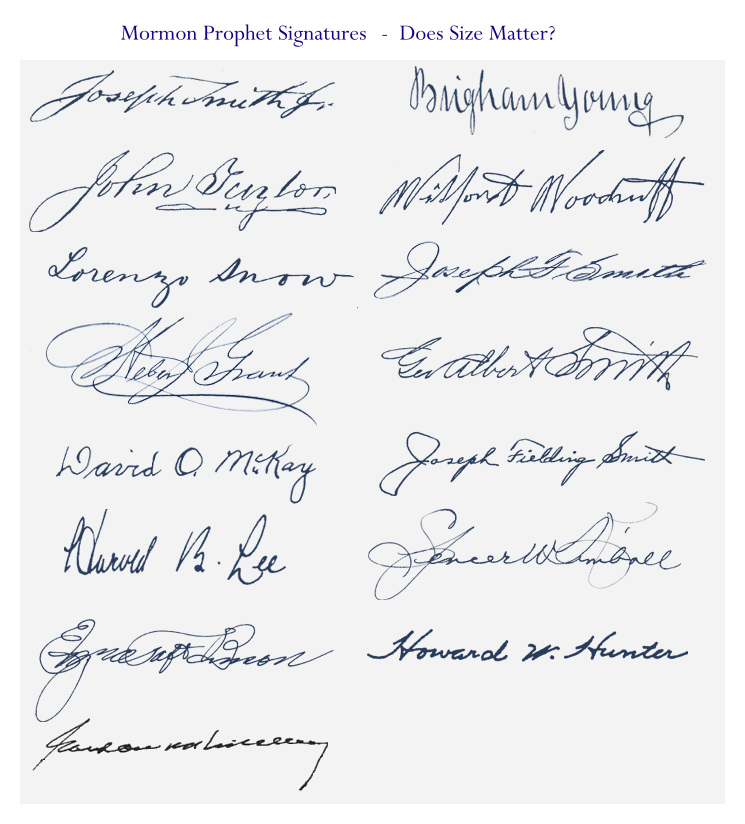 Mormon Prophet Signatures - Does Size Matter?
Joseph Smith Jr. Brigham Young
John Taylor Wilford Woodruff
Lorenzo Snow Joseph F Smith
Heber J Grant Geo Albert Smith
David O. McKay Joseph Fielding Smith
Harold B. Lee Spencer W Kimball
Ezra Taft Benson Howard W. Hunter
Gordon B Hinckley